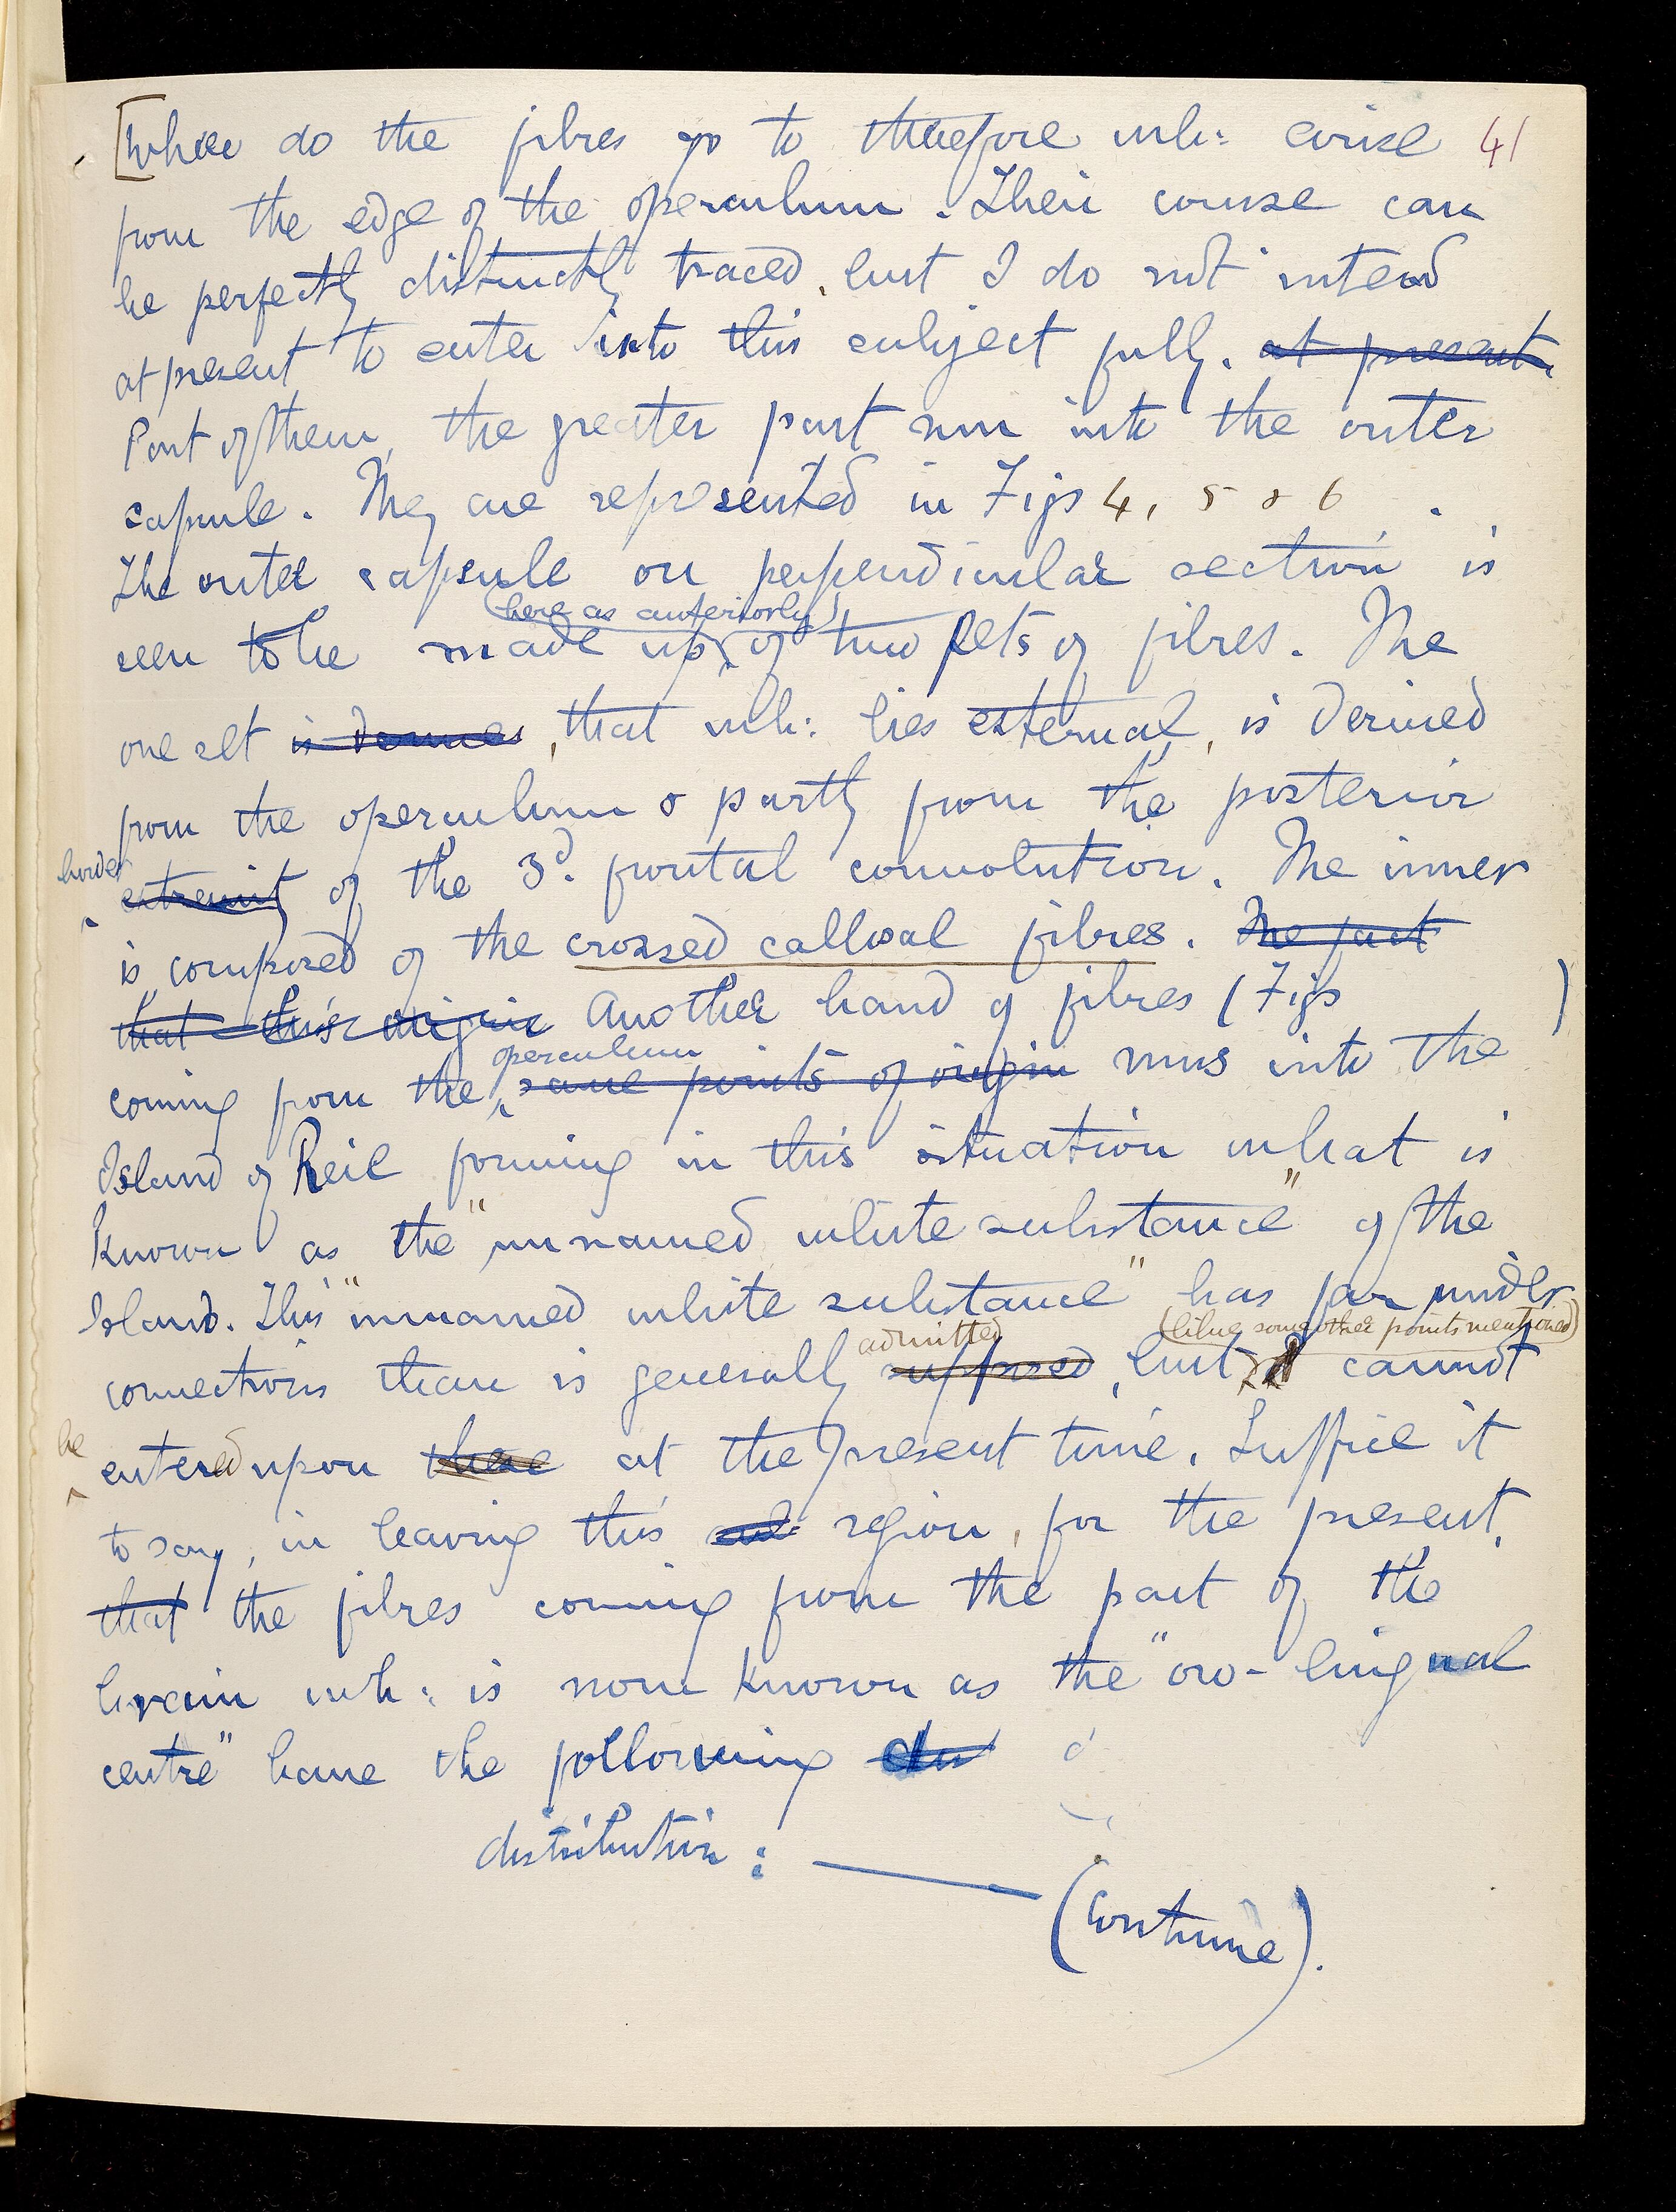 [Where do the fibres go to therefore wh: arise 41
from the edge of the operculum. Their course can
be perfectly distinctly traced, but I do not intend
at present to enter into this subject fully. at present.
Part of them, the greater part run into the outer
capsule. They are represented in Figs 4, 5 & 6 .
The outer capsule on perpendicular section is
(here as anteriorly)
seen to be made up of two sets of fibres. The
one set is derived, that wh: lies external, is derived
from the operculum & partly from the posterior
border
extremity of the 3d. frontal convolution. The inner
is composed of the crossed callosal fibres. The fact
that this origin Another band of fibres (Figs )
operculum
coming from the same points of origin runs into the
Island of Reil forming in this situation what is
known as the "unnamed white substance" of the
Island. This "unnamed white substance" has far wider
admitted (like some other points mentioned)
connections than is generally supposed, but cannot
be
entered upon these at the present time. Suffice it
to say, in leaving this region, for the present,
that the fibres coming from the part of the
brain wh: is now known as the "oro-lingual
centre" have the following
distribution: —
(Continue).